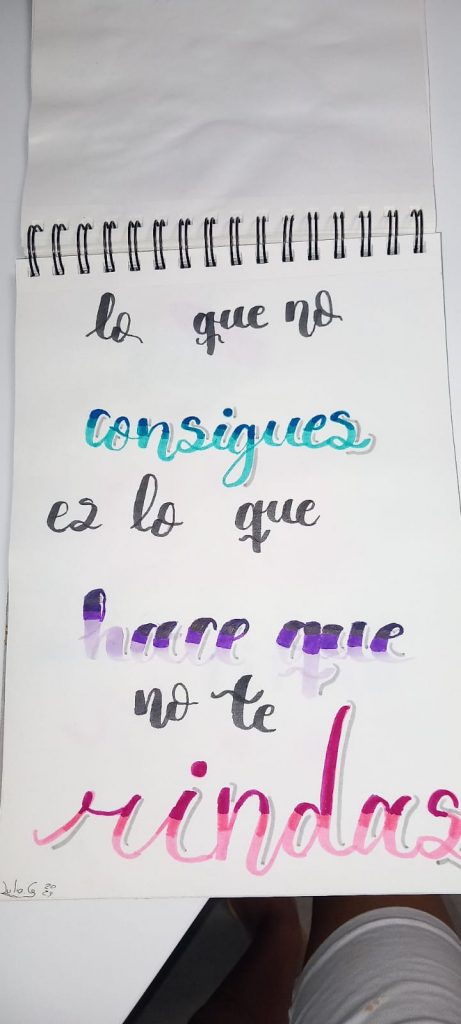 lo que no
consigues
es lo que
hace que
no te
rindas